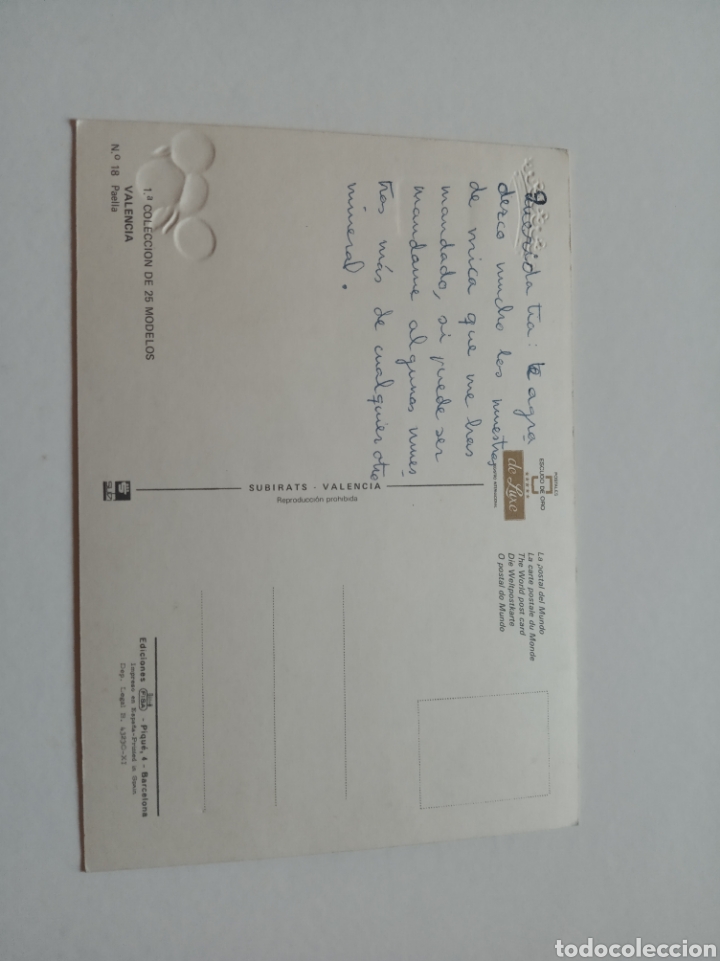 Querida tía: te agra
dezco mucho las muestras
de mica que me has
mandado, si puede ser
mandame algunas mues
tras más de cualquier otro
mineral.
1.ª COLECCION DE 25 MODELOS
VALENCIA
N.º 18 Paella
POSTALES
ESCUDO DE ORO
de Luxe
SUBIRATS - VALENCIA
Reproducción prohibida
La postal del Mundo
La carte postale du Monde
The World post card
Die Weltpostkarte
O postal do Mundo
Ediciones FISA - Piqué, 4 - Barcelona
Impreso en España-Printed in Spain
Dep. Legal B. 43830-XI
todocoleccion